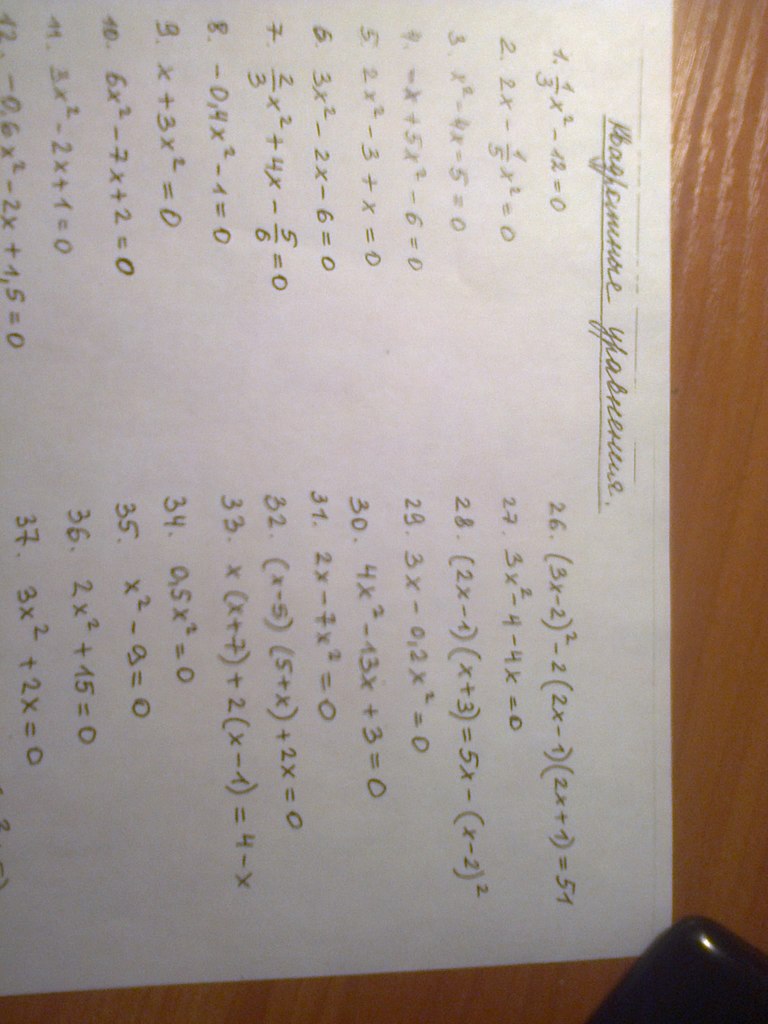 Квадратные уравнения.
1. 1/3 x² - 12 = 0
2. 2x - 1/5 x² = 0
3. x² - 4x = 5 = 0
4. -x + 5x² - 6 = 0
5. 2x² - 3 + x = 0
6. 3x² - 2x - 6 = 0
7. 2/3 x² + 4x - 5/6 = 0
8. -0,4x² - 1 = 0
9. x + 3x² = 0
10. 6x² - 7x + 2 = 0
11. 3x² - 2x + 1 = 0
12. -0,6x² - 2x + 1,5 = 0
26. (3x-2)² - 2(2x-1)(2x+1) = 51
27. 3x² - 4 - 4x = 0
28. (2x-1)(x+3) = 5x - (x-2)²
29. 3x - 0,2x² = 0
30. 4x² - 13x + 3 = 0
31. 2x - 7x² = 0
32. (x-5)(5+x) + 2x = 0
33. x(x+7) + 2(x-1) = 4 - x
34. 0,5x² = 0
35. x² - 9 = 0
36. 2x² + 15 = 0
37. 3x² + 2x = 0